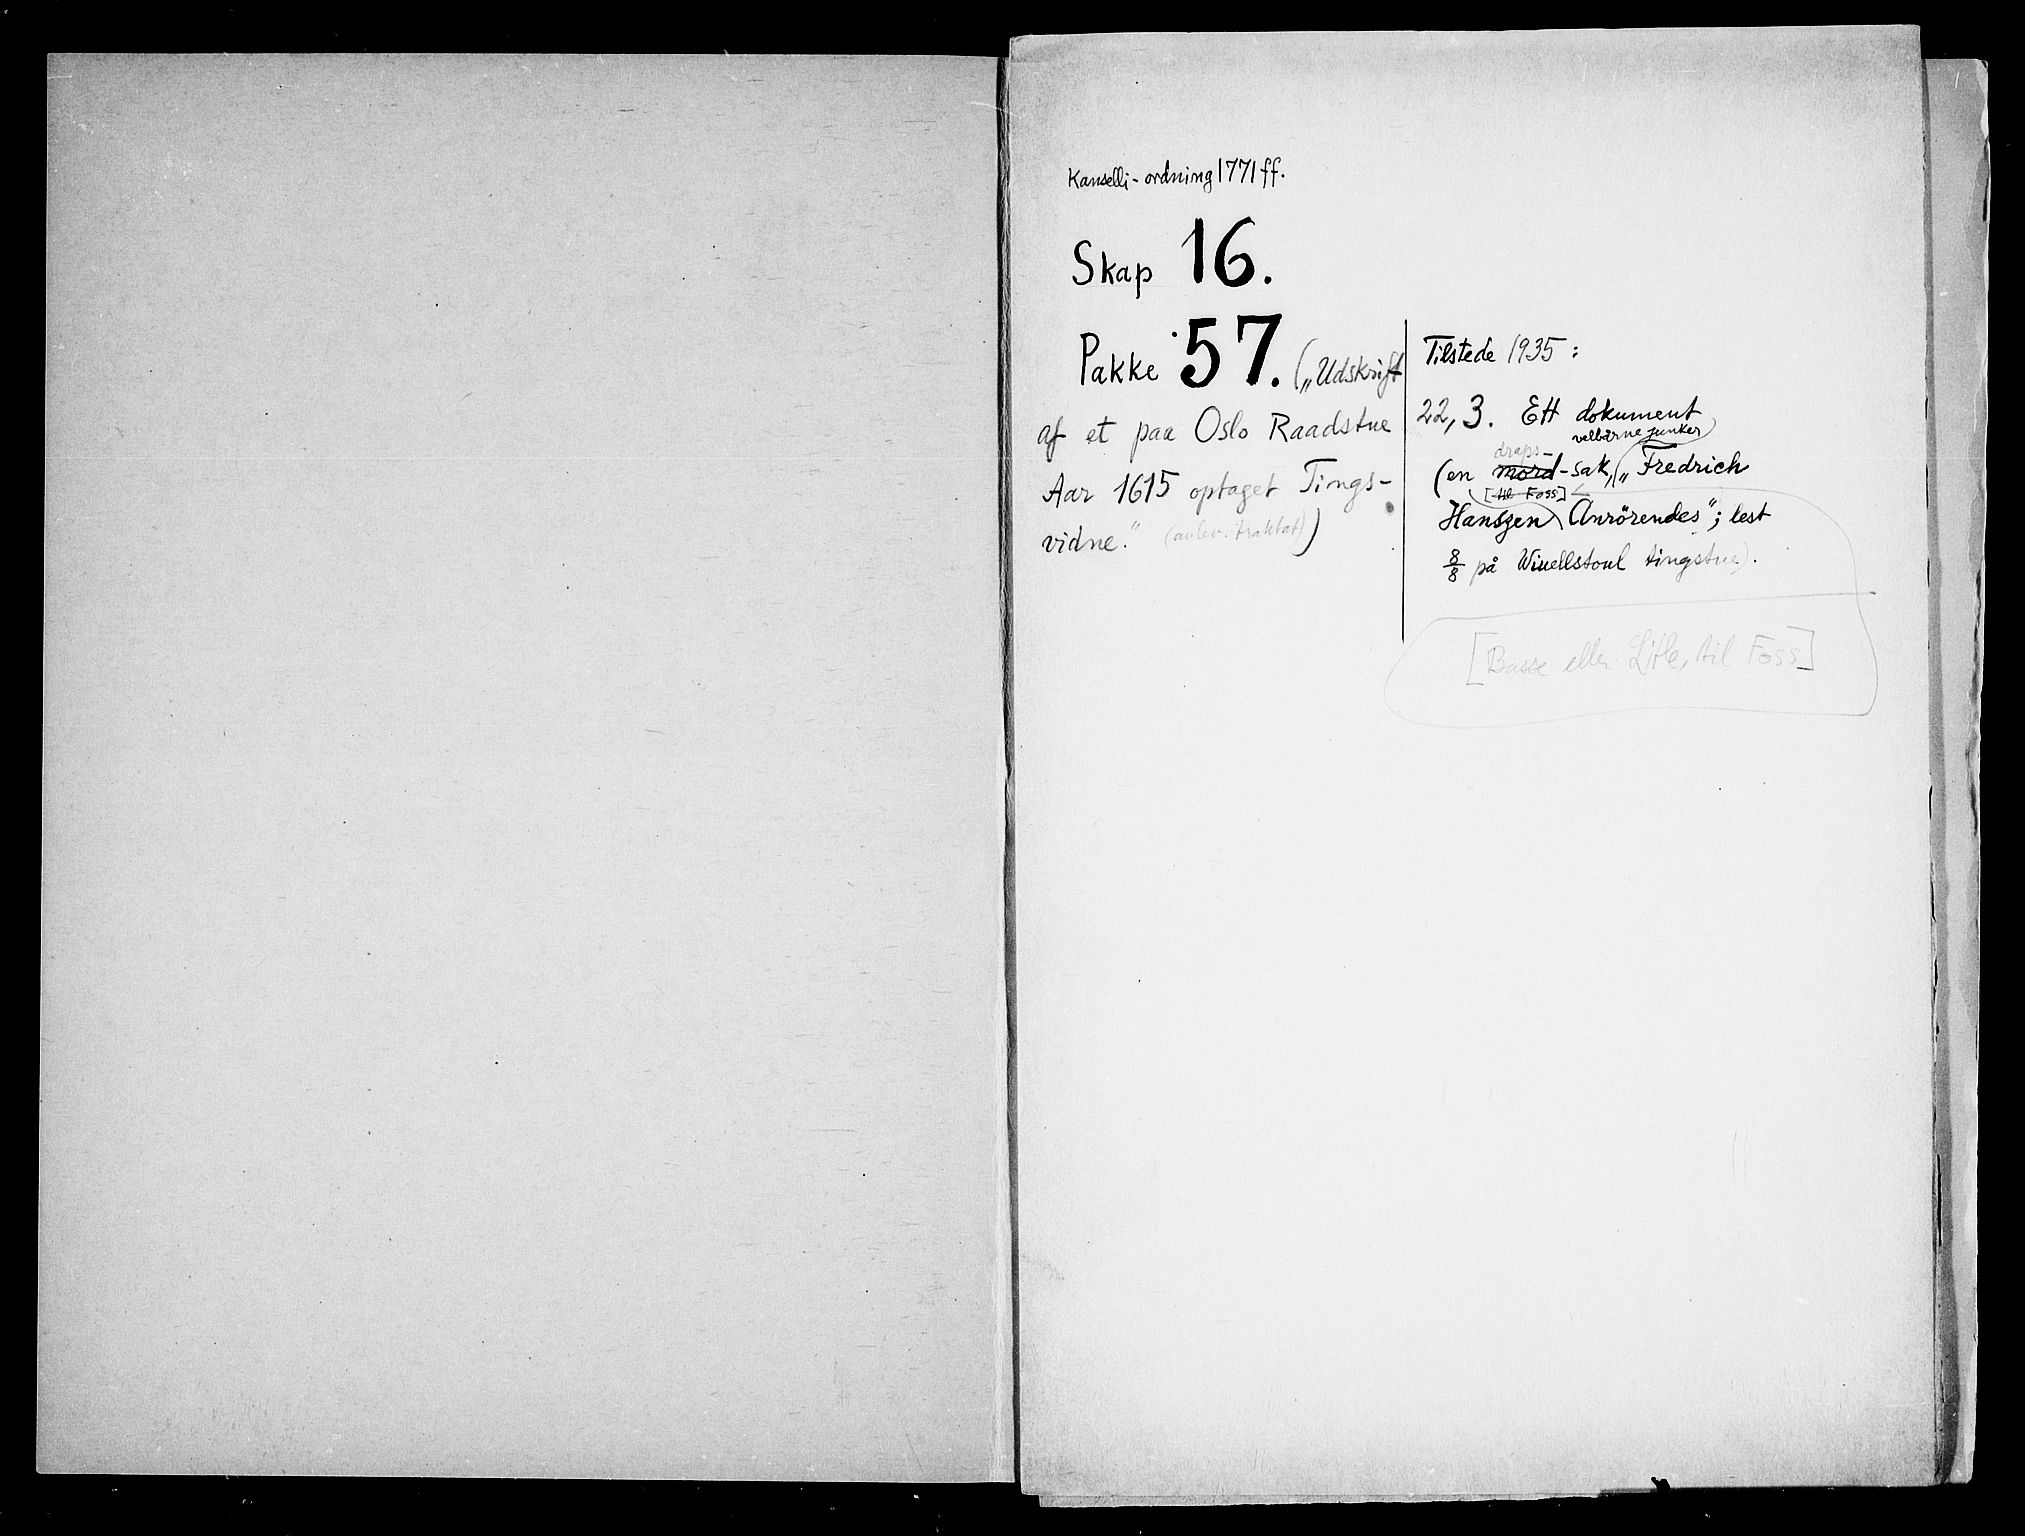 Kanselli-ordning 1771 ff.
Skap 16.
Pakke 57. („Udskrift
af et paa Oslo Raadstue
Aar 1615 optaget Tings-
vidne.")
Tilstede 1935:
22,3. Ett dokument
velbårne junker
draps-
(en mord-sak, „Fredrich
[til Foss]
Hanszen Anrörendes"; lest
8/8 på Winellstoul tingstue).
[Basse eller Litle, til Foss]